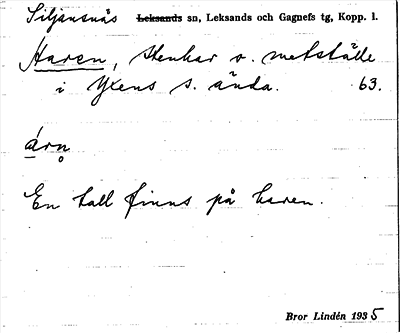 Siljansnäs Leksands sn, Leksands och Gagnefs tg, Kopp. l.
Haren, stenhar o. metställe
i Yxens s. ända. 63.
árn̥
En tall finns på haren.
Bror Lindén 1935